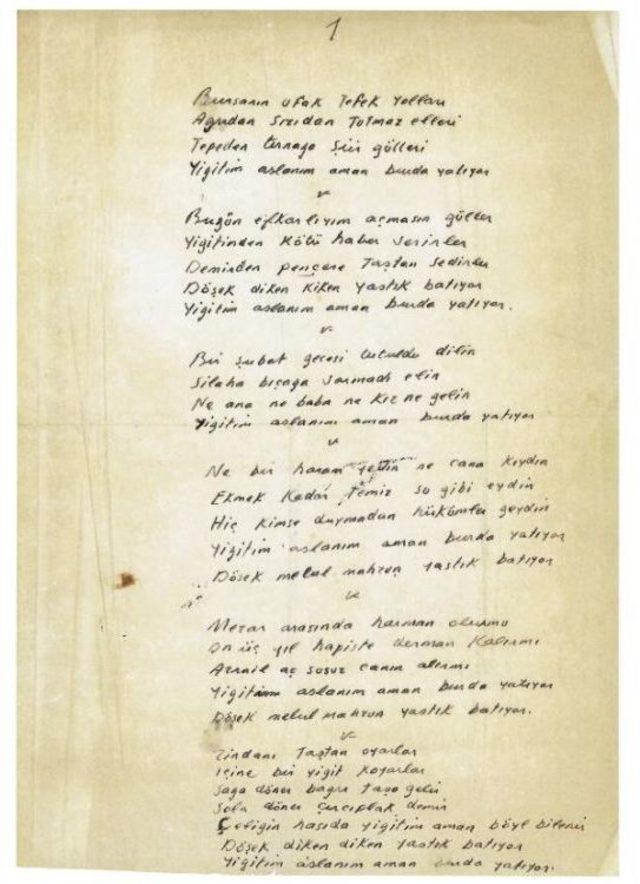 1
Bursanın ufak tefek yolları
Ağrıdan sızıdan tutmaz elleri
Tepeden tırnağa şiir gülleri
Yiğitim aslanım aman burda yatıyor
Bugün efkarlıyım açmasın güller
Yiğitinden kötü haber verirler
Demirden pencere taştan sedirler
Döşek diken kiken yastık batıyor
Yiğitim aslanım aman burda yatıyor.
Bir şubat gecesi tutuldu dilin
Silaha bıçaga varmadı elin
Ne ana ne baba ne kız ne gelin
Yiğitim aslanım aman burda yatıyor
Ne bir haram yedin ne cana kıydın
Ekmek kadar temiz su gibi eydin
Hiç kimse duymadan hükümler geydin
Yiğitim aslanım aman burda yatıyor
Döşek melul mahzun yastık batıyor
Mezar arasında harman olurmu
On üç yıl hapiste derman kalırmı
Azrail aç susuz canın alırmı
Yiğitim aslanım aman burda yatıyor
Döşek melul mahzun yastık batıyor.
Zindanı taştan oyarlar
içine bir yigit koyarlar
Saga döner bagrı taşa gelir
Sola döner çırçıplak demir
Çeligin hasıda yigitim aman böyl bilenir
Döşek diken diken yastık batıyor
Yigitim aslanım aman burda yatıyor.